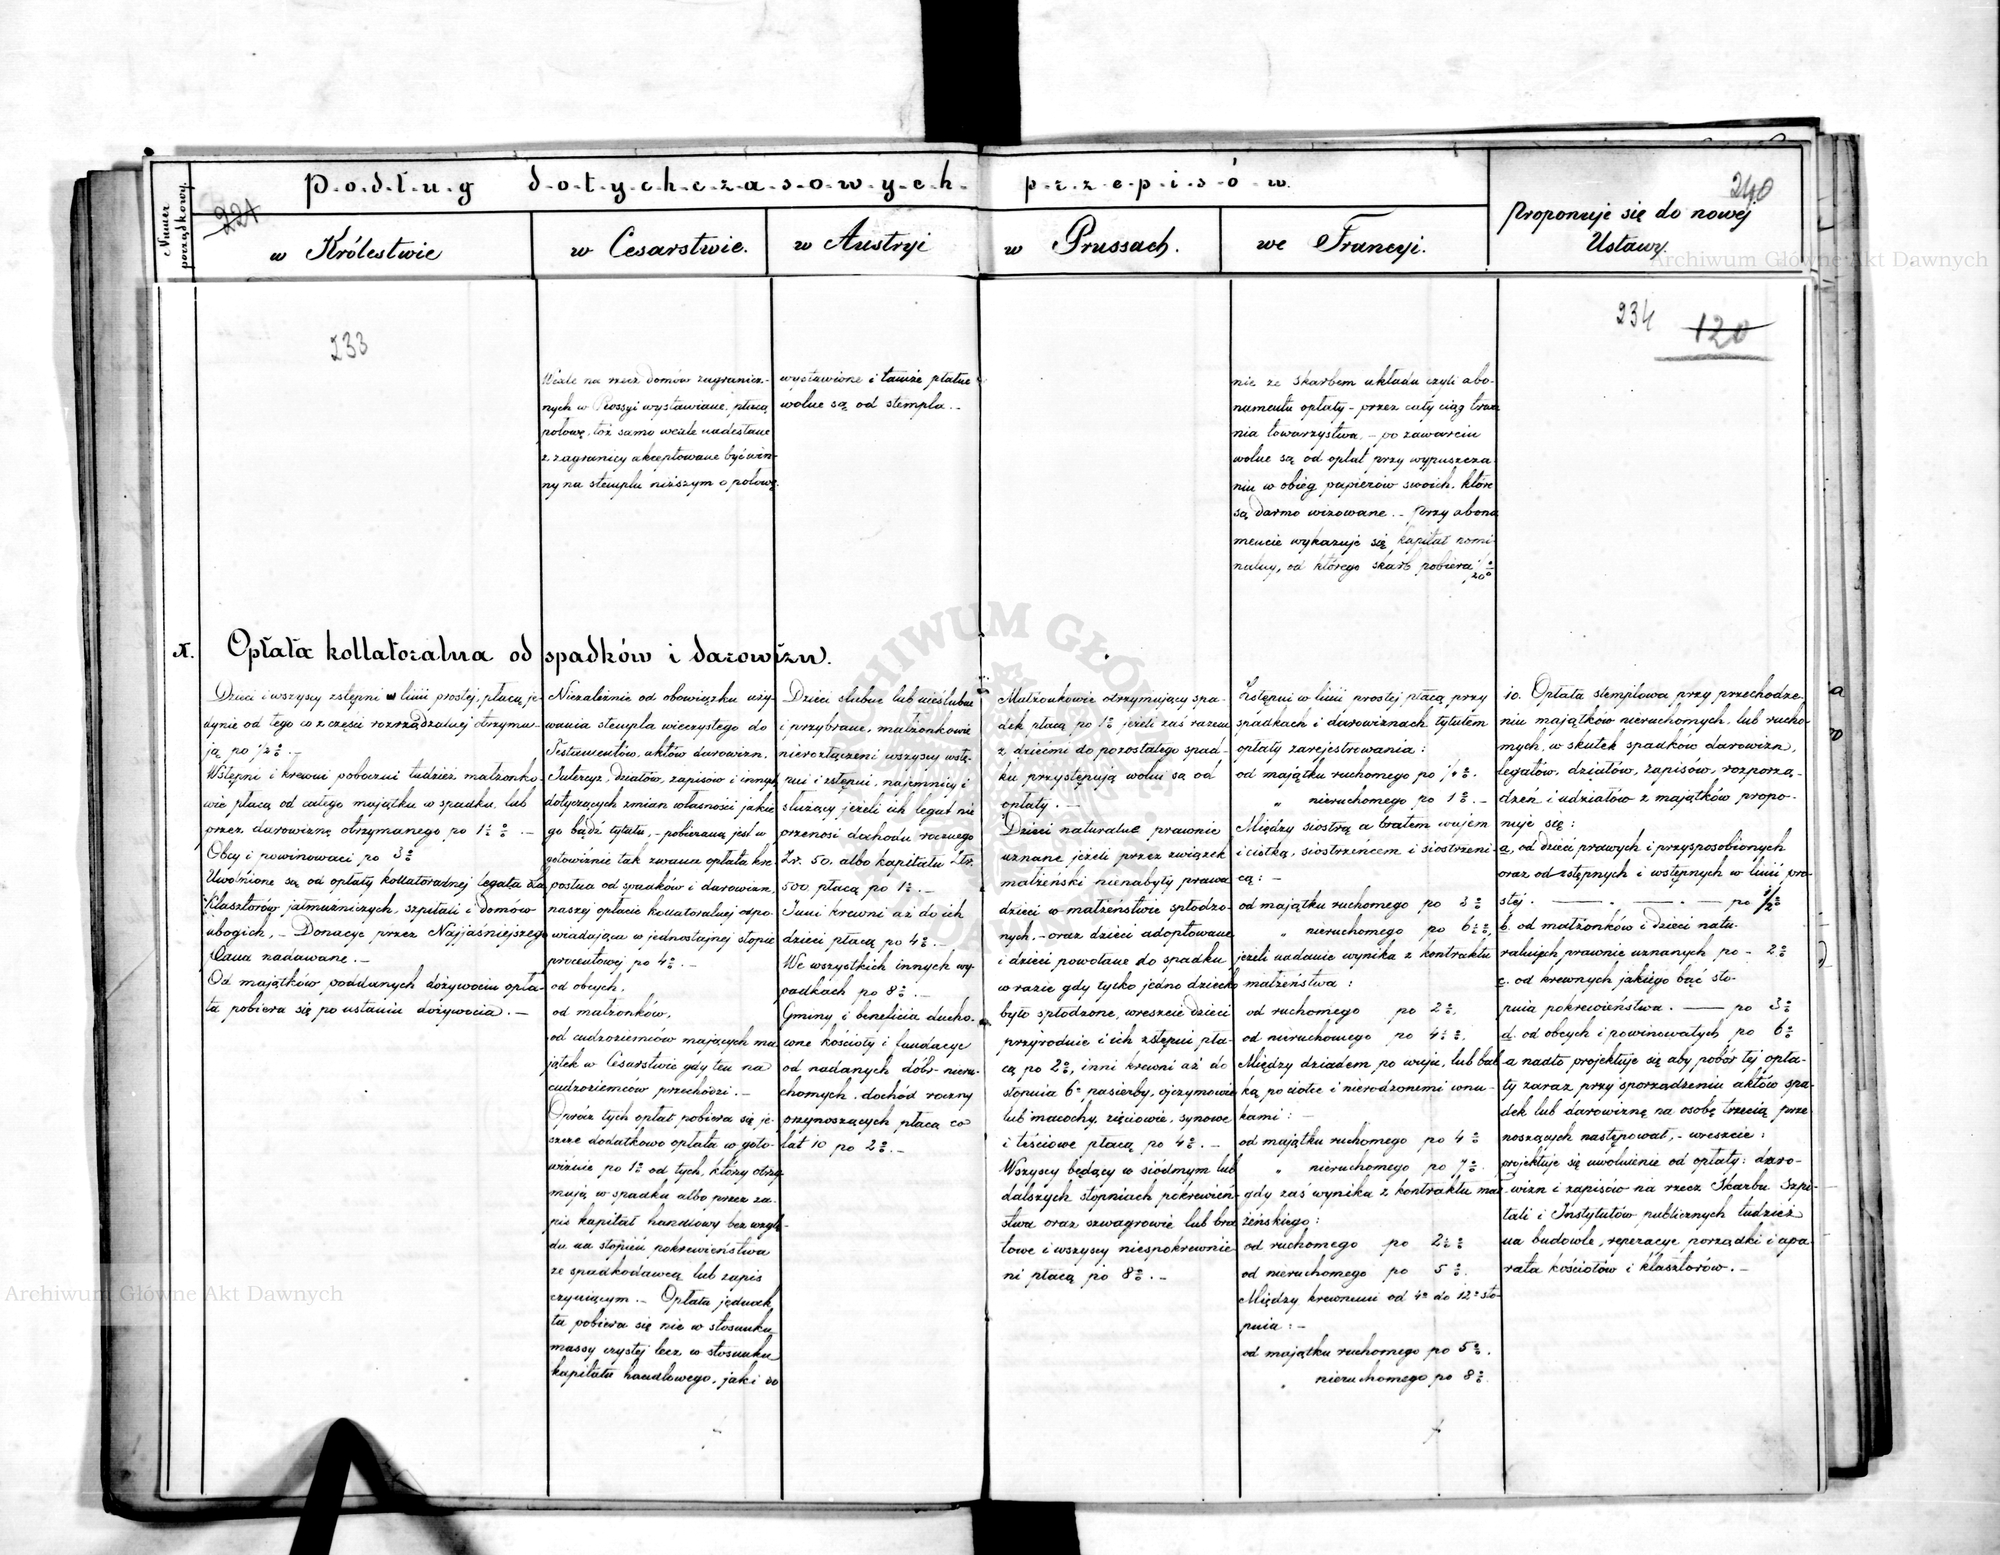 Numer porządkowy
P.o.d.ł.u.g d.o.t.y.c.h.c.z.a.s.o.w.y.c.h. p.r.z.e.p.i.s.ó.w.
221
w Królestwie
w Cesarstwie.
w Austryi
w Prussach.
we Francyi.
240
Proponuje się do nowej
Ustawy.
233
Wexle na rzecz domów zagranicz-
nych w Rossyi wystawiane, płacą
połowę, toż samo wexle nadesłane
z zagranicy akceptowane być win-
ny na stemplu niższym o połowę.
wystawione i tamże płatne
wolne są od stempla.-
nie ze skarbem układu czyli abo-
namentu opłaty - przez cały ciąg trwa
nia towarzystwa, - po zawarciu
wolne są od opłat przy wypuszcza-
niu w obieg papierów swoich, które
są darmo wizowane. - Przy abona
mencie wykazuje się kapitał nomi-
nalny, od którego skarb pobiera
234
120
X.
Opłata kollateralna od spadków i darowizn.
Dzieci i wszyscy zstępni w linii prostej, płacą je-
dynie od tego co z części rozrządzalnej otrzymu-
ją po ½ %.-
Wstępni i krewni poboczni tudzież małżonko-
wie płacą od całego majątku w spadku, lub
przez darowiznę otrzymanego po 1½ %.-
Obcy i powinowaci po 3%
Uwolnione są od opłaty kollateralnej legata dla
Klasztorów jałmużniczych, szpitali i domów
ubogich, - Donacye przez Najjaśniejszego
Pana nadawane.-
Od majątków poddanych dożywociu opła-
ta pobiera się po ustaniu dożywocia.-
Niezależnie od obowiązku uży-
wania stempla wieczystego do
Testamentów, aktów darowizn,
Intercyz, działów, zapisów i innych
dotyczących zmian własności jakie
go bądź tytułu, - pobieraną jest w
gotowiźnie tak zwana opłata kre
postna od spadków i darowizn,
naszej opłacie kollateralnej odpo-
wiadająca w jednostajnej stopie
procentowej po 4%.-
od obcych,
od małżonków,
od cudzoziemców mających ma
jątek w Cesarstwie gdy ten na
cudzoziemców przechodzi.-
Oprócz tych opłat pobiera się je-
szcze dodatkowo opłata w goto-
wiźnie po 1% od tych, którzy otrzy
mują w spadku albo przez za-
pis kapitał handlowy bez wzglę-
du na stopień pokrewieństwa
ze spadkodawcą lub zapis
czyniącym.- Opłata jednak
ta pobiera się nie w stosunku
massy czystej lecz w stosunku
kapitału handlowego, jaki do
Dzieci ślubne lub nieślubne
i przybrane, małżonkowie
nierozłączeni wszyscy wstę-
pni i zstępni, najemnicy i
służący jeżeli ich legat nie
przenosi dochodu rocznego
Zr. 50. albo kapitału Złr.
500. płacą po 1%.-
Inni krewni aż do ich
dzieci płacą po 4%.-
We wszystkich innych wy-
padkach po 8%.-
Gminy i beneficia ducho-
wne kościoły i fundacye
od nadanych dóbr nieru-
chomych, dochód roczny
przynoszących płacą co
lat 10 po 2%.-
Małżonkowie otrzymujący spa-
dek płacą po 1% jeżeli zaś razem
z dziećmi do pozostałego spad-
ku przystępują wolni są od
opłaty.-
Dzieci naturalne prawnie
uznane jeżeli przez związek
małżeński nienabyły prawa
dzieci w małżeństwie spłodzo-
nych, - oraz dzieci adoptowane
i dzieci powołane do spadku
w razie gdy tylko jedno dziecko
było spłodzone, wreszcie dzieci
przyrodnie i ich zstępni pła-
cą po 2%, inni krewni aż do
stopnia 6º pasierby, ojczymowie
lub macochy, zięciowie, synowe
i teściowe płacą po 4%.-
Wszyscy będący w siódmym lub
dalszych stopniach pokrewień-
stwa oraz szwagrowie lub bra
towe i wszyscy niespokrewnie
ni płacą po 8%.-
Zstępni w linii prostej płacą przy
spadkach i darowiznach tytułem
opłaty zarejestrowania:
od majątku ruchomego po ¼%.
" nieruchomego po 1%.-
Między siostrą a bratem wujem
i ciotką, siostrzeńcem i siostrzeni-
cą: -
od majątku ruchomego po 3%
" nieruchomego po 6½%,
jeżeli nadanie wynika z kontraktu
małżeństwa:
od ruchomego po 2%,
od nieruchomego po 4½%,
Między dziadem po wuju, lub bab-
ką po ciotce i nierodzonemi wnu-
kami: -
od majątku ruchomego po 4%
" nieruchomego po 7%.
gdy zaś wynika z kontraktu mał-
żeńskiego:
od ruchomego po 2½%
od nieruchomego po 5%.
Między krewnemi od 4º do 12º sto-
pnia: -
od majątku ruchomego po 5%.
" nieruchomego po 8%.
10. Opłata stemplowa przy przechodze-
niu majątków nieruchomych, lub rucho-
mych, w skutek spadków darowizn,
legatów, działów, zapisów, rozporzą-
dzeń i udziałów z majątków propo-
nuje się:
a, od dzieci prawych i przysposobionych
oraz od zstępnych i wstępnych w linii pro-
stej. - po ½%
b. od małżonków i dzieci natu-
ralnych prawnie uznanych po - 2%
c. od krewnych jakiego bąć sto-
pnia pokrewieństwa. - po 3%
d. od obcych i powinowatych po 6%
a nadto projektuje się aby pobór tej opła-
ty zaraz przy sporządzeniu aktów spa-
dek lub darowiznę na osobę trzecią prze
noszących następował, - wreszcie:
projektuje się uwolnienie od opłaty: daro-
wizn i zapisów na rzecz Skarbu Szpi-
tali i Instytutów publicznych tudzież
na budowle, reperacye porządki i apa-
rata kościołów i klasztorów.-
Archiwum Główne Akt Dawnych
Archiwum Główne Akt Dawnych